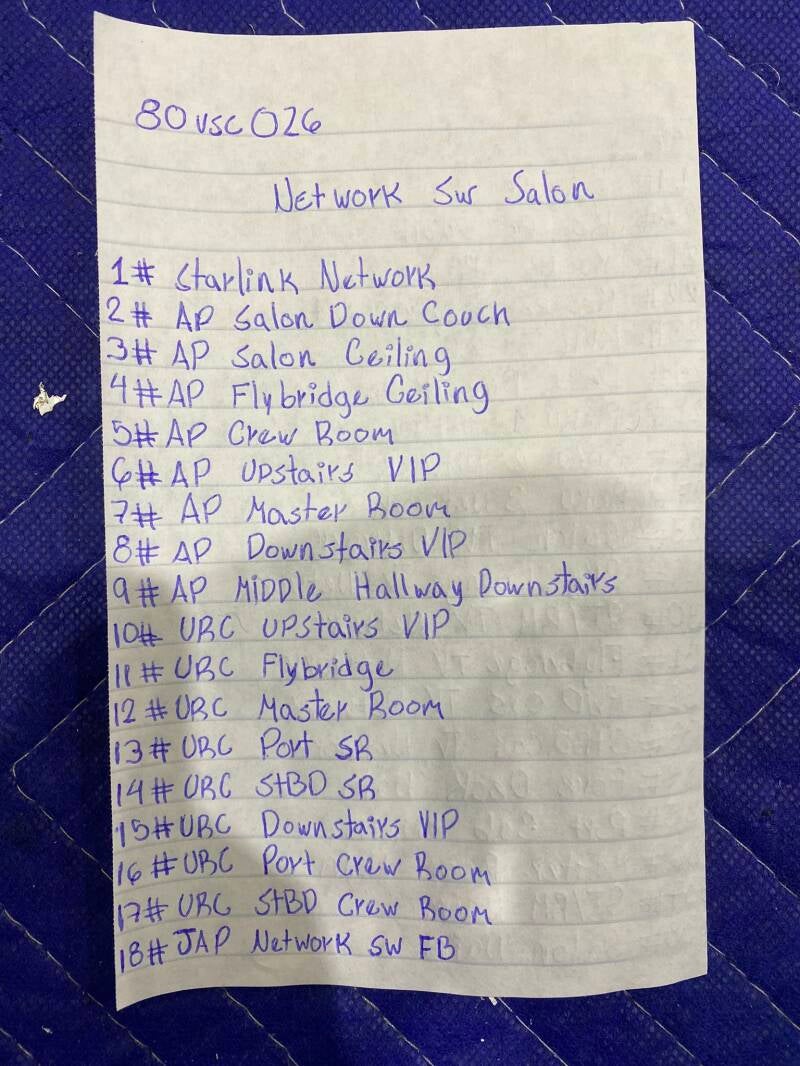 80VSC026
Network Sw Salon
1# Starlink Network
2# AP Salon Down Couch
3# AP Salon Ceiling
4# AP Flybridge Ceiling
5# AP Crew Room
6# AP Upstairs VIP
7# AP Master Room
8# AP Downstairs VIP
9# AP MiDDle Hallway Downstairs
10# URC Upstairs VIP
11# URC Flybridge
12# URC Master Room
13# URC Port SR
14# URC StBD SR
15# URC Downstairs VIP
16# URC Port Crew Room
17# URC StBD Crew Room
18# JAP Network SW FB